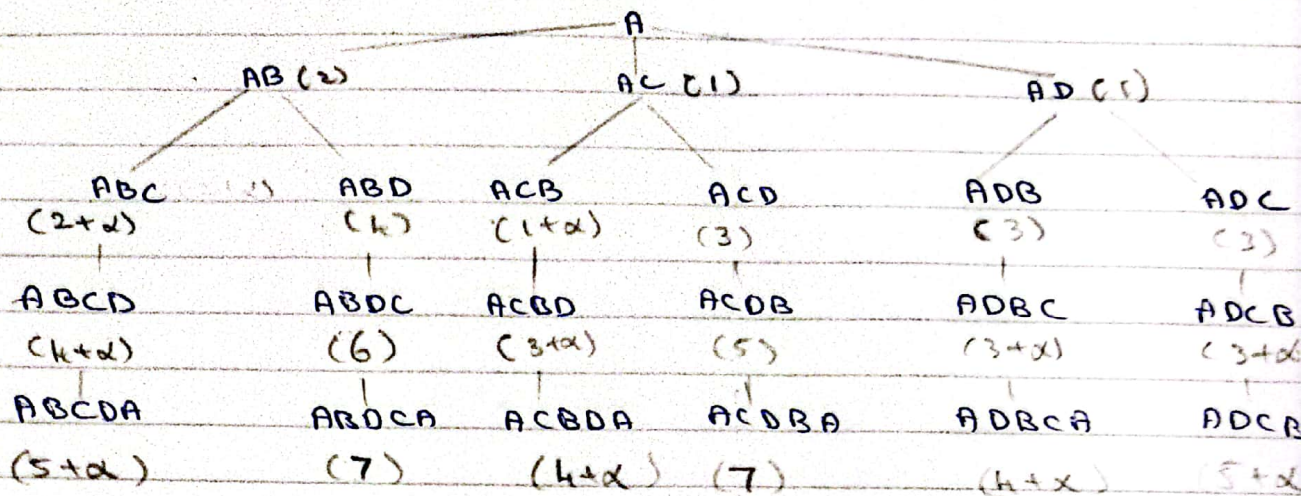 A
AB (2) AC (1) AD (1)
ABC ABD ACB ACD ADB ADC
(2+α) (4) (1+α) (3) (3) (3)
ABCD ABDC ACBD ACDB ADBC ADCB
(4+α) (6) (3+α) (5) (3+α) (3+α
ABCDA ABDCA ACBDA ACDBA ADBCA ADCB
(5+α) (7) (4+α) (7) (4+α 5+α